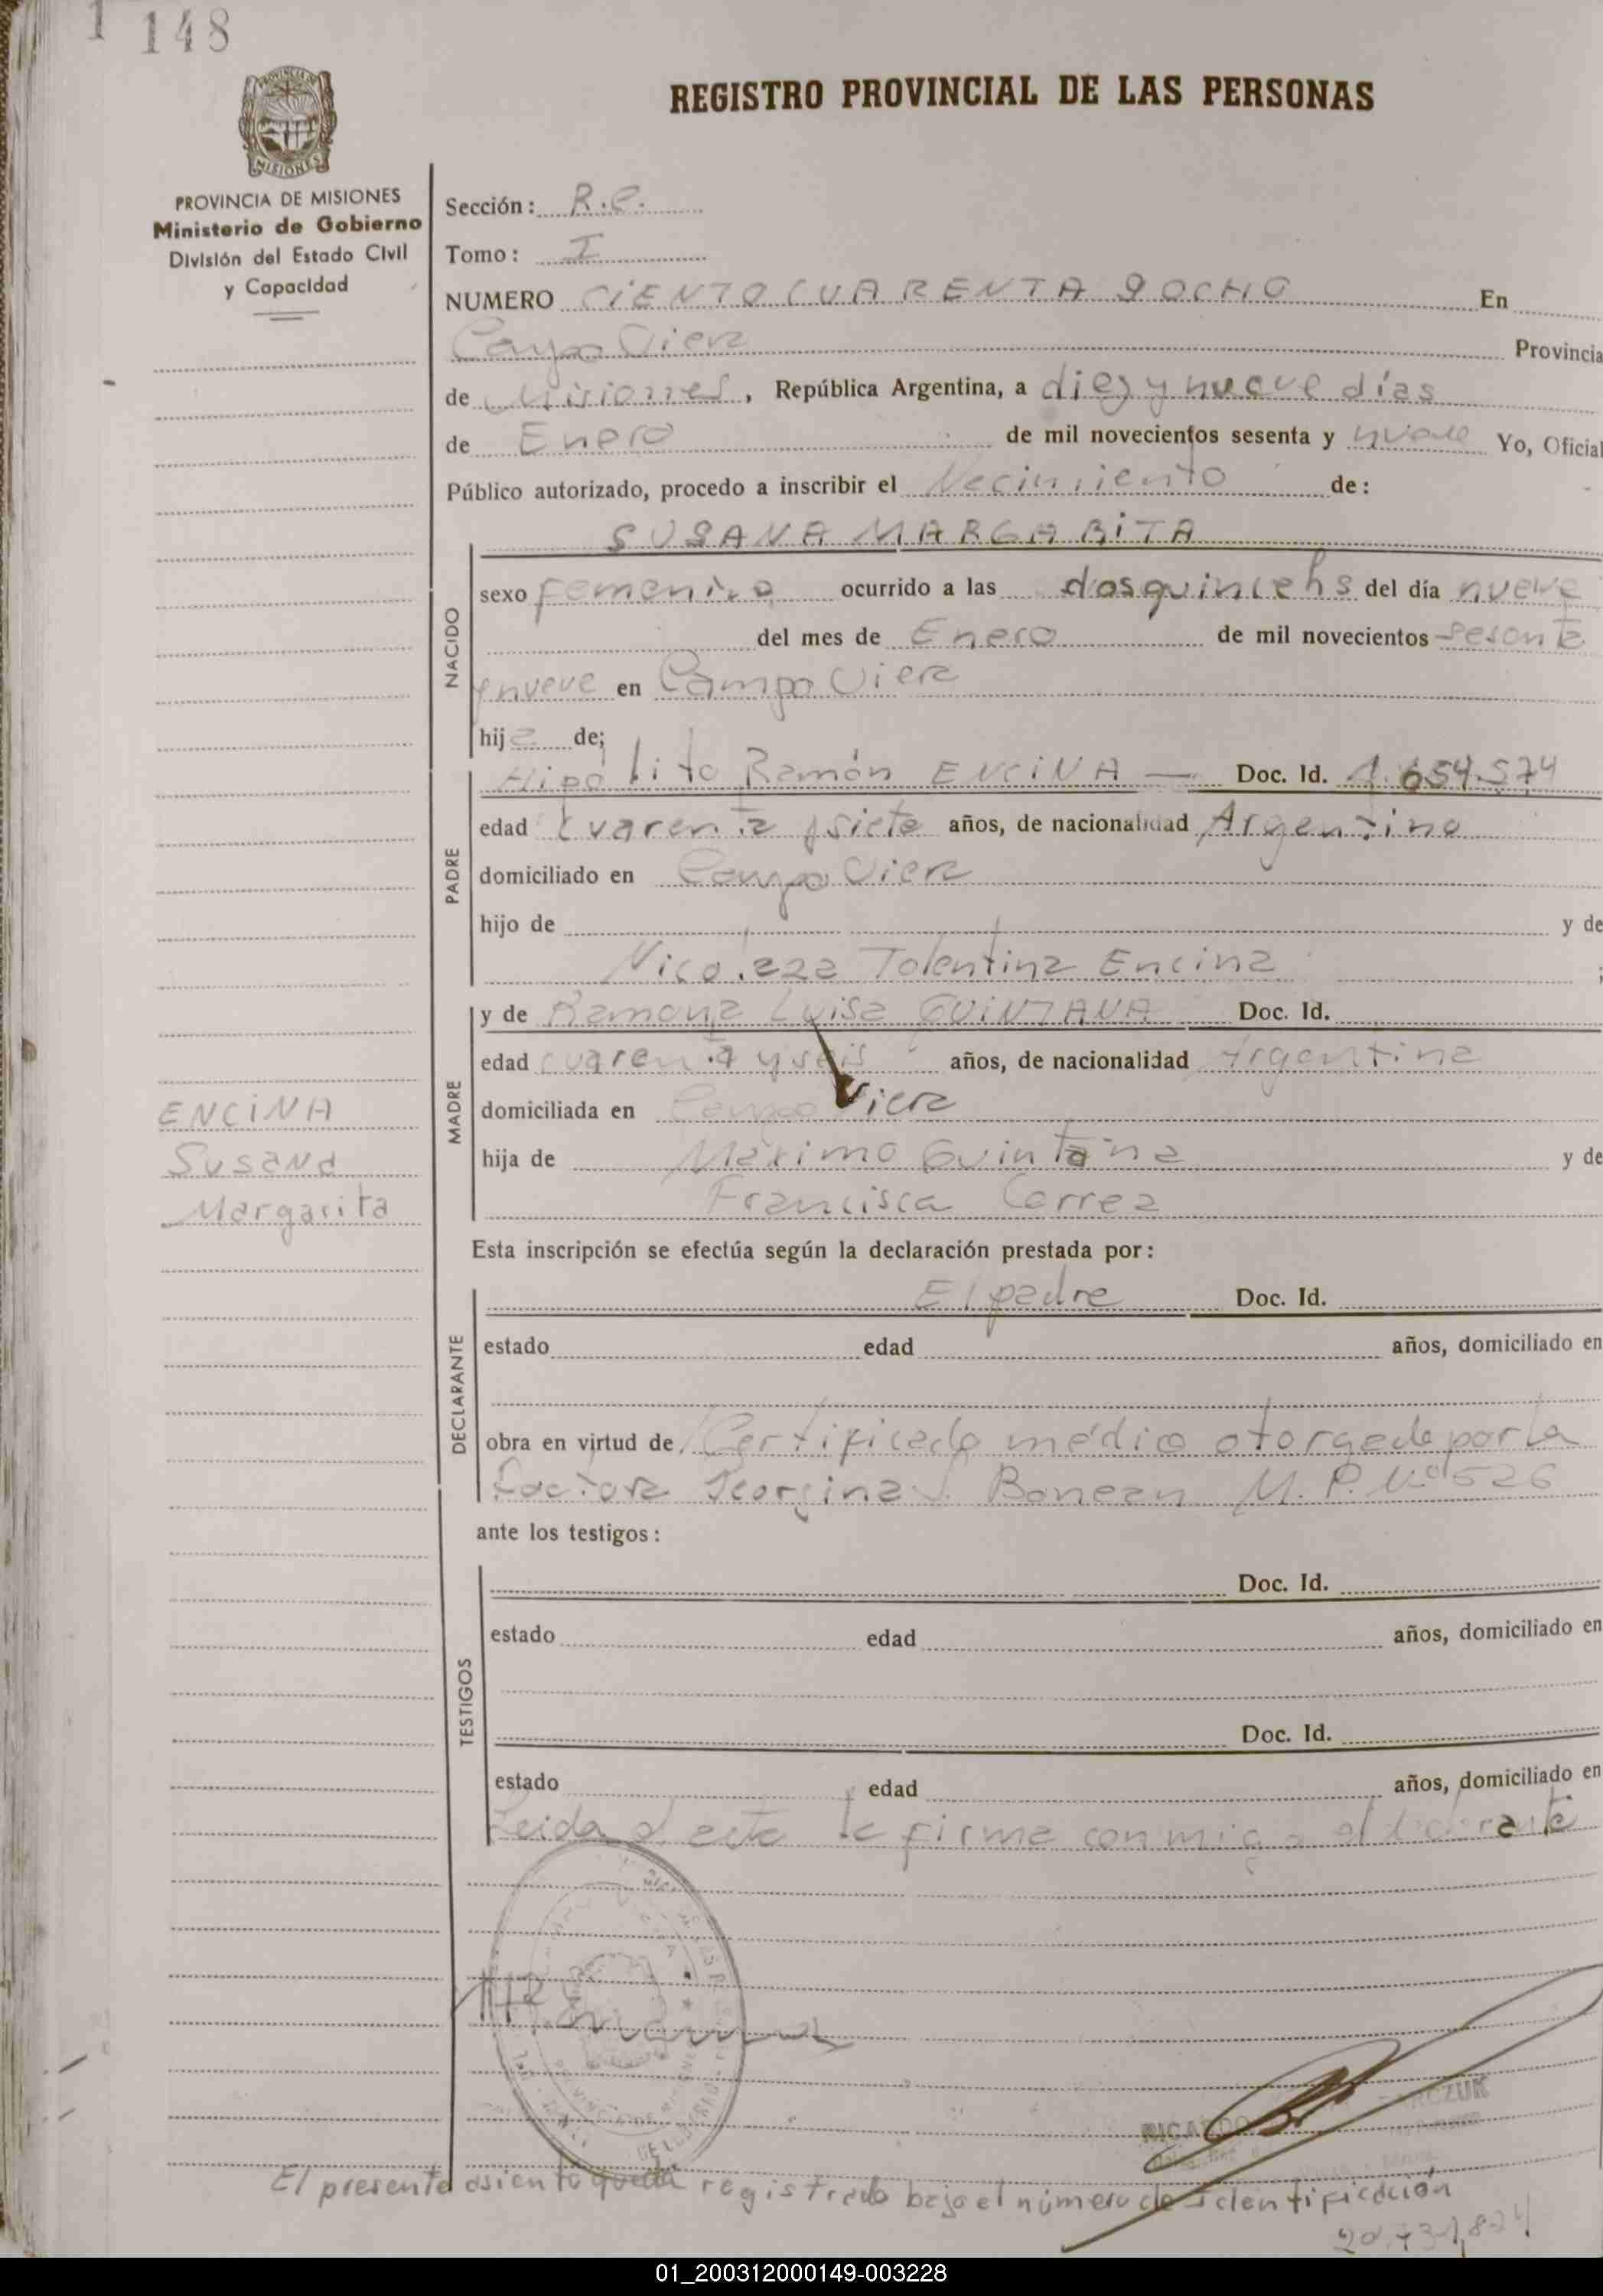 1 148
PROVINCIA DE
MISIONES
REGISTRO PROVINCIAL DE LAS PERSONAS
PROVINCIA DE MISIONES
Ministerio de Gobierno
División del Estado Civil
y Capacidad
Sección: R.C.
Tomo: I
NUMERO CIENTO CUARENTA Y OCHO En
Campo Viera Provincia
de Misiones, República Argentina, a diez y nueve días
de Enero de mil novecientos sesenta y nueve Yo, Oficial
Público autorizado, procedo a inscribir el Nacimiento de:
SUSANA MARGARITA
NACIDO
sexo femenino ocurrido a las dos quince hs del día nueve
del mes de Enero de mil novecientos sesenta
y nueve en Campo Viera
hija de;
PADRE
Hipólito Ramón ENCINA — Doc. Id. 1.654.574
edad cuarenta y siete años, de nacionalidad Argentino
domiciliado en Campo Viera
hijo de y de
Tolentina Encina ;
MADRE
y de Ramona Luisa QUINTANA Doc. Id.
edad cuarenta y seis años, de nacionalidad Argentina
domiciliada en Campo Viera
hija de Máximo Quintana y de
Francisca Correa
ENCINA
Susana
Margarita
Esta inscripción se efectúa según la declaración prestada por:
DECLARANTE
El padre Doc. Id.
estado edad años, domiciliado en
obra en virtud de Certificado médico otorgado por la
Doctora Georgina Bonean M. P. Nº 526
ante los testigos:
TESTIGOS
Doc. Id.
estado edad años, domiciliado en
Doc. Id.
estado edad años, domiciliado en
Leida el acta la firma conmigo el declarante
RICARDO
El presente asiento queda registrado bajo el número de identificación
01_200312000149-003228